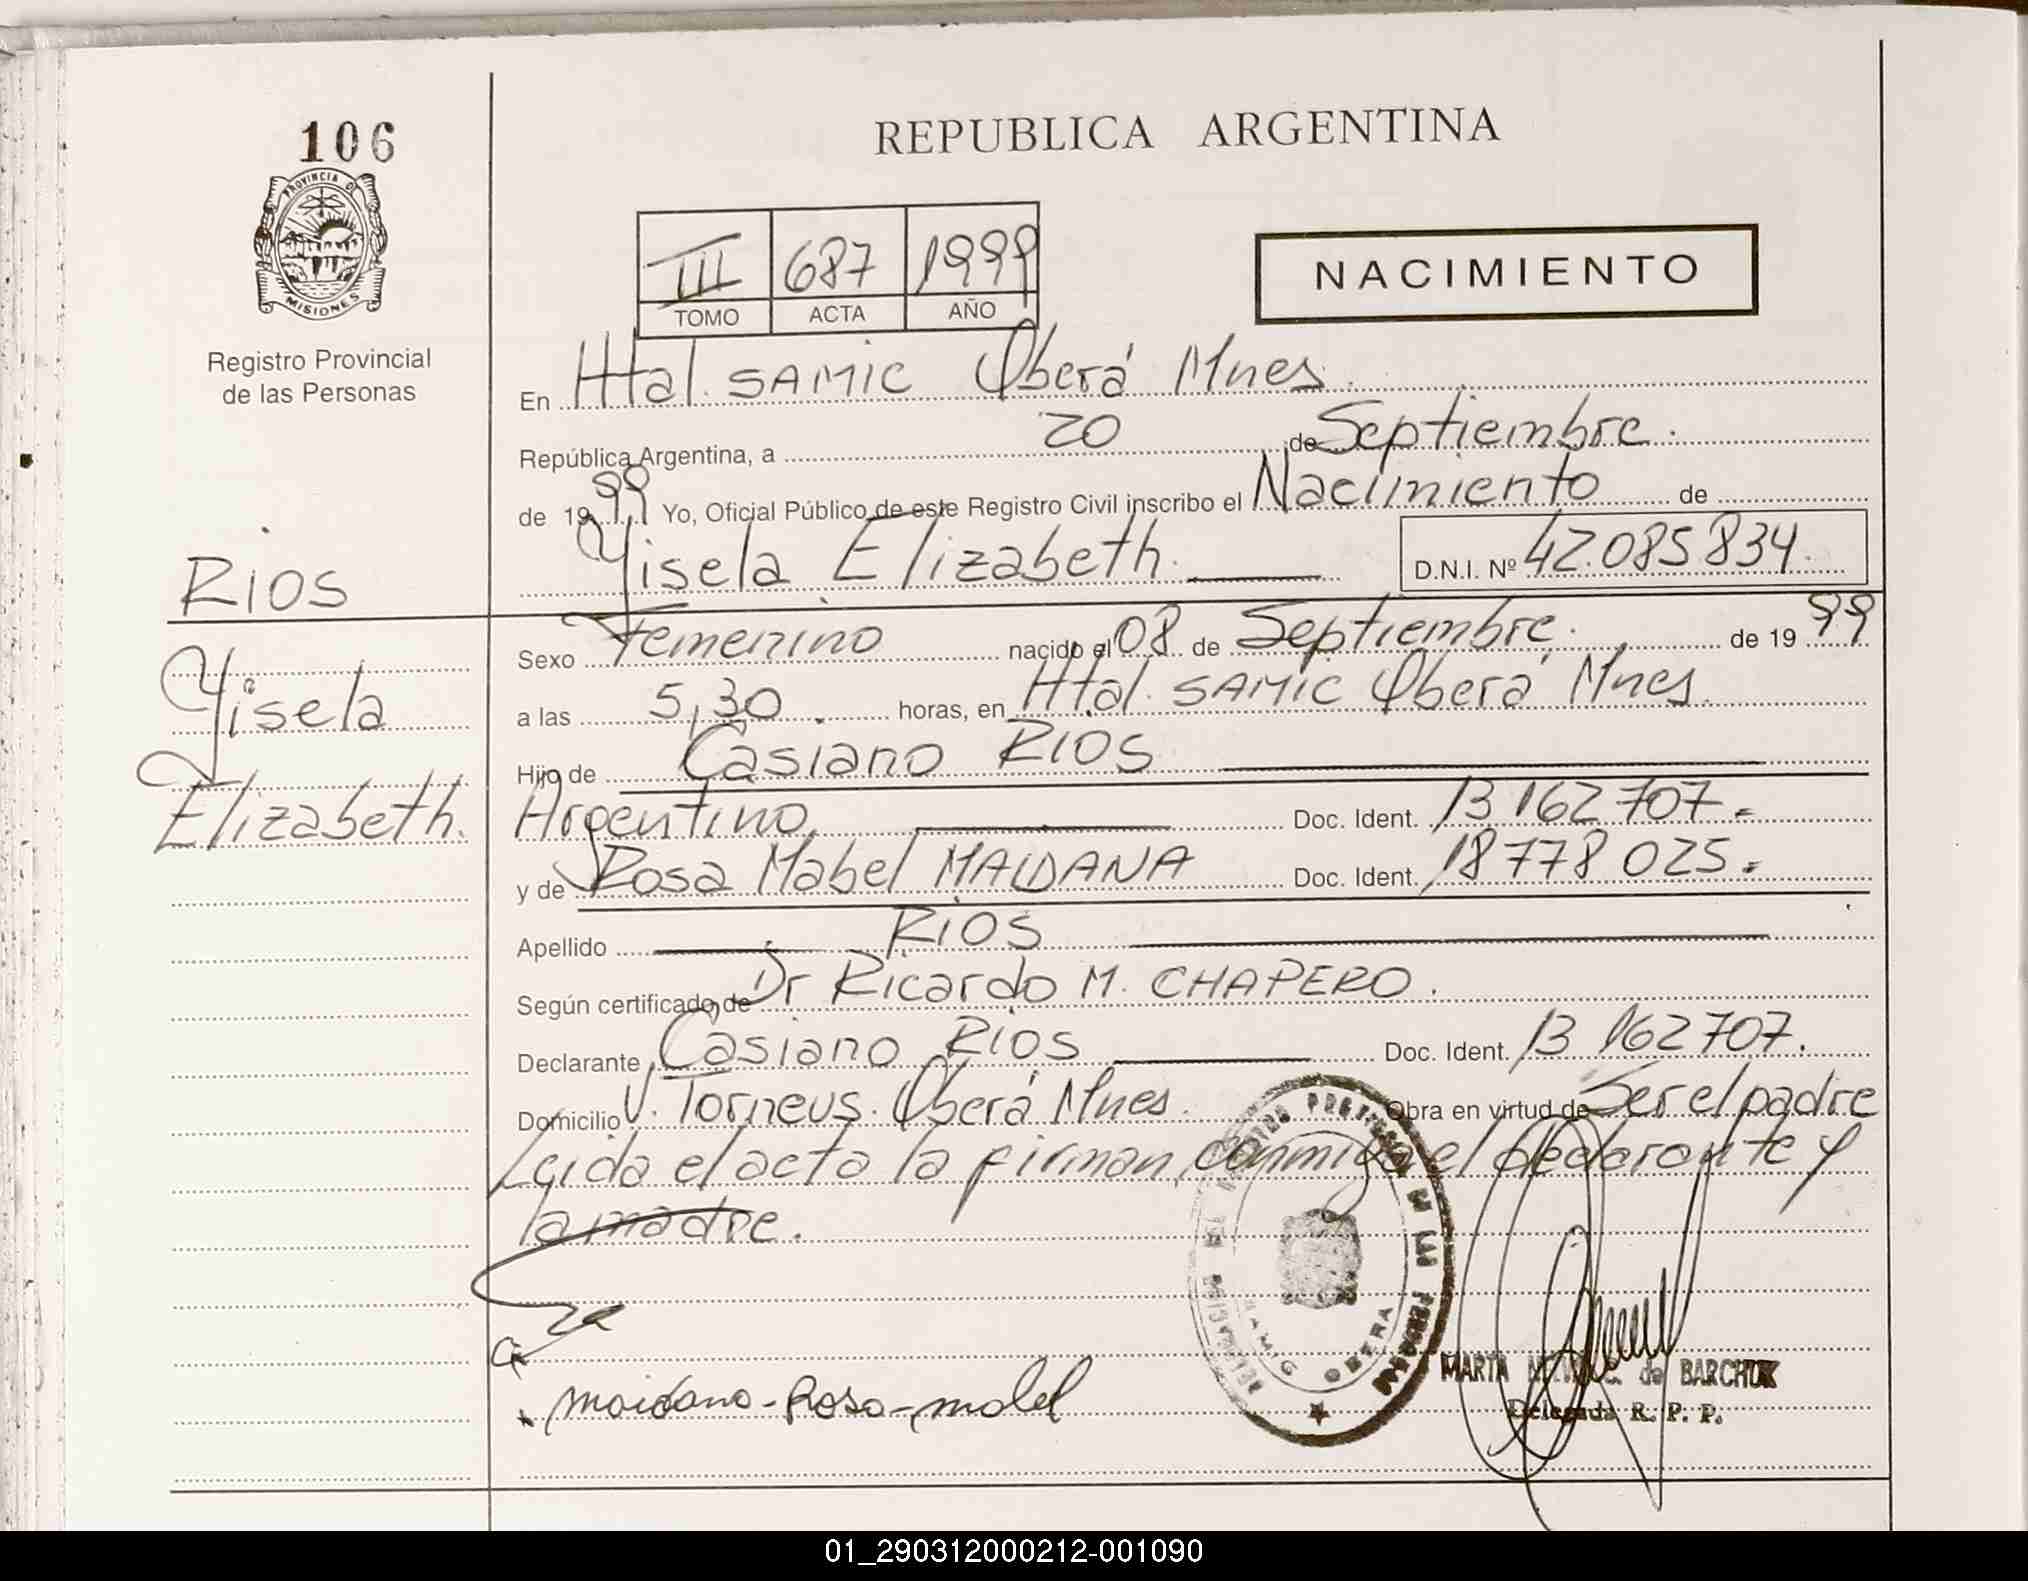 106
PROVINCIA DE
MISIONES
Registro Provincial
de las Personas
RIOS
Gisela
Elizabeth.
REPUBLICA ARGENTINA
III 687 1999
TOMO ACTA AÑO
NACIMIENTO
En Htal. SAMIC Oberá Mnes.
República Argentina, a 20 de Septiembre.
de 1999 Yo, Oficial Público de este Registro Civil inscribo el Nacimiento de
Gisela Elizabeth. D.N.I. Nº 42.085.834.
Sexo Femenino nacido el 08 de Septiembre. de 1999
a las 5,30. horas, en Htal. SAMIC Oberá Mnes.
Hijo de Casiano RIOS
Argentino, Doc. Ident. 13 162 707.
y de Rosa Mabel MAIDANA Doc. Ident. 18 778 025.
Apellido RIOS
Según certificado de Dr Ricardo M. CHAPERO.
Declarante Casiano RIOS Doc. Ident. 13 162 707.
Domicilio V. Torneus. Oberá Mnes. Obra en virtud de Ser el padre
Leida el acta la firman, conmigo el declarante y
la madre.
maidana-Rosa-mabel
OBERA
MARTA de BARCHUK
Delegada R. P. P.
01_290312000212-001090